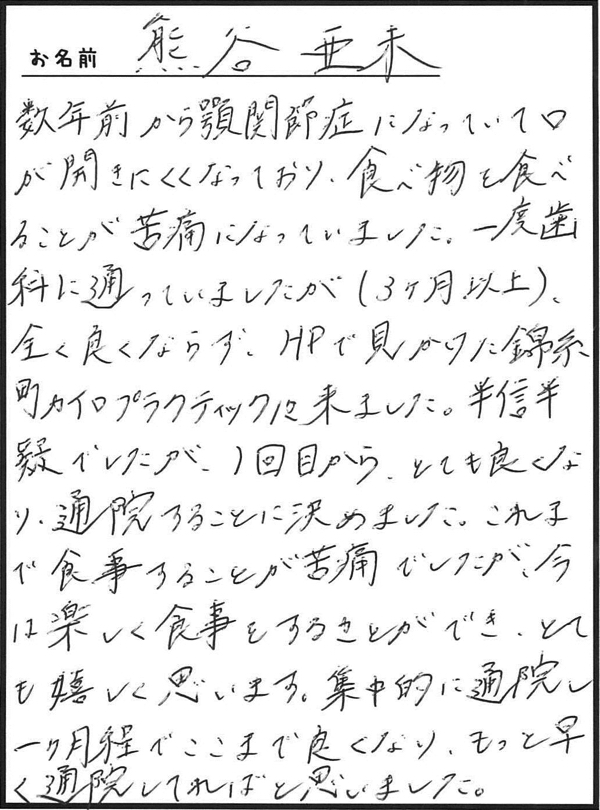 お名前 熊谷 亜未
数年前から顎関節症になっていて口
が開きにくくなっており、食べ物を食べ
ることが苦痛になっていました。一度歯
科に通っていましたが(3ヶ月以上)、
全く良くならず、HPで見かけた錦糸
町カイロプラクティックに来ました。半信半
疑でしたが、1回目から、とても良くな
り、通院することに決めました。これま
で食事することが苦痛でしたが、今
は楽しく食事をすることができ、とて
も嬉しく思います。集中的に通院し
一ヶ月程でここまで良くなり、もっと早
く通院してればと思いました。